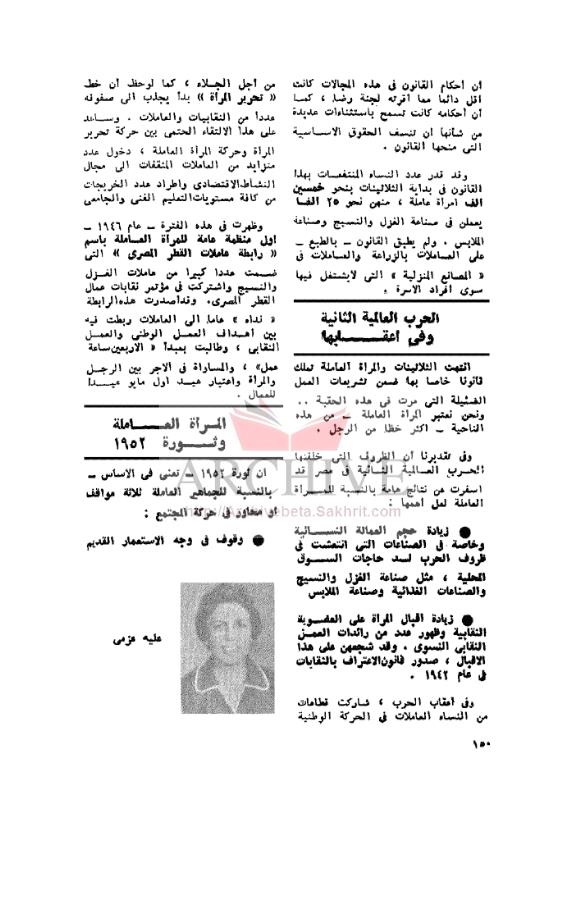 أن أحكام القانون فى هذه المجالات كانت
أقل دائما مما أقرته لجنة رضا ، كما
أن أحكامه كانت تسمح باستثناءات عديدة
من شأنها أن تنسف الحقوق الأساسية
التى منحها القانون .
وقد قدر عدد النساء المنتفعات بهذا
القانون فى بداية الثلاثينات بنحو خمسين
ألف امرأة عاملة ، منهن نحو ٢٥ الفا
يعملن فى صناعة الغزل والنسيج وصناعة
الملابس . ولم يطبق القانون ــ بالطبع ــ
على العاملات بالزراعة والعاملات فى
« المصانع المنزلية » التى لايشتغل فيها
سوى أفراد الأسرة .
الحرب العالمية الثانية
وفى أعقـــابها
انتهت الثلاثينات والمرأة العاملة تملك
قانونا خاصا بها ضمن تشريعات العمل
الضئيلة التى مرت فى هذه الحقبة ..
ونحن نعتبر المرأة العاملة ــ من هذه
الناحية ــ أكثر حظا من الرجل .
وفى تقديرنا أن الظروف التى خلقتها
الحرب العالمية الثانية فى مصر قد
أسفرت عن نتائج هامة بالنسبة للمرأة
العاملة لعل أهمها :
● زيادة حجم العمالة النسائية
وخاصة فى الصناعات التى انتعشت فى
ظروف الحرب لسد حاجات السوق
المحلية ، مثل صناعة الغزل والنسيج
والصناعات الغذائية وصناعة الملابس
● زيادة اقبال المرأة على العضوية
النقابية وظهور عدد من رائدات العمل
النقابى النسوى . وقد شجعهن على هذا
الاقبال ، صدور قانون الاعتراف بالنقابات
فى عام ١٩٤٢ .
وفى أعقاب الحرب ، شاركت قطاعات
من النساء العاملات فى الحركة الوطنية
من أجل الجلاء ، كما لوحظ أن خط
« تحرير المرأة » بدأ يجذب الى صفوفه
عددا من النقابيات والعاملات . وساعد
على هذا الالتقاء الحتمى بين حركة تحرير
المرأة وحركة المرأة العاملة ، دخول عدد
متزايد من العاملات المثقفات الى مجال
النشاط الاقتصادى واطراد عدد الخريجات
من كافة مستويات التعليم الفنى والجامعى
وظهرت فى هذه الفترة ــ عام ١٩٤٦ ــ
أول منظمة عامة للمرأة العاملة باسم
« رابطة عاملات القطر المصرى » التى
ضمت عددا كبيرا من عاملات الغزل
والنسيج واشتركت فى مؤتمر نقابات عمال
القطر المصرى. وقد أصدرت هذه الرابطة
« نداء » عاما الى العاملات ربطت فيه
بين أهداف العمل الوطنى والعمل
النقابى ، وطالبت بمبدأ « الأربعين ساعة
عمل» ، والمساواة فى الأجر بين الرجل
والمرأة واعتبار عيد أول مايو عيدا
للعمال .
المرأة العـــاملة
وثـــورة ١٩٥٢
ان ثورة ١٩٥٢ ــ تعنى فى الأساس ــ
بالنسبة للجماهير العاملة ثلاثة مواقف
أو محاور فى حركة المجتمع :
● وقوف فى وجه الاستعمار القديم
عليه عزمى
١٥٠
ARCHIVE
beta.Sakhrit.com